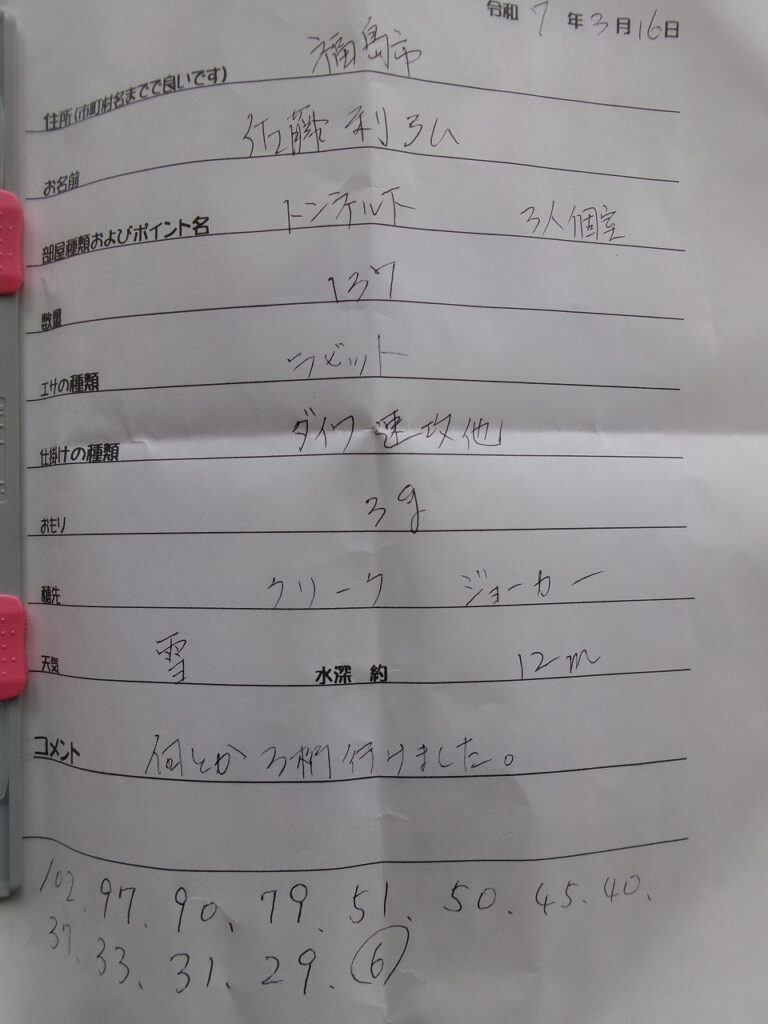 令和 7 年 3 月 16 日
住所(市町村名までで良いです) 福島市
お名前 佐藤利弘
部屋種類およびポイント名 トンネル下 3人個室
数量 137
エサの種類 ラビット
仕掛けの種類 ダイワ 速攻他
おもり 3g
穂先 クリーク ジョーカー
天気 雪 水深 約 12m
コメント 何とか3桁行けました。
102. 97. 90. 79. 51. 50. 45. 40.
37. 33. 31. 29. 6